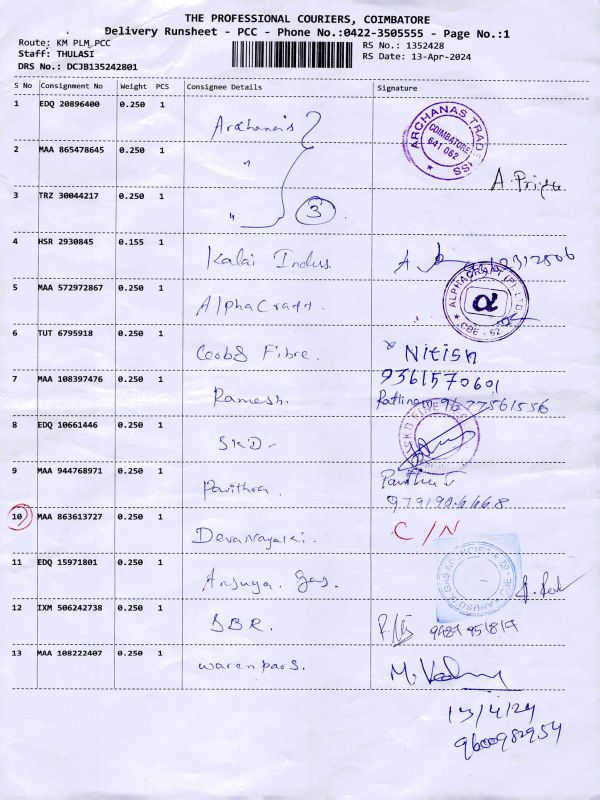 THE PROFESSIONAL COURIERS, COIMBATORE
Delivery Runsheet - PCC - Phone No.:0422-3505555 - Page No.:1
Route: KM PLM_PCC
Staff: THULASI
DRS No.: DCJB135242801
RS No.: 1352428
RS Date: 13-Apr-2024
S No Consignment No Weight PCS Consignee Details Signature
1 EDQ 20896400 0.250 1 Archana's
ARCHANAS TRAD
COIMBATORE
641 062
2 MAA 865478645 0.250 1 "
A. Priya
3 TRZ 30044217 0.250 1 " 3
4 HSR 2930845 0.155 1 Kalai Indus.
5 MAA 572972867 0.250 1 AlphaCraft.
ALPHACRAFT (P) LTD
α
CBE - 62
6 TUT 6795918 0.250 1 Fibre. Nitish
9361570601
7 MAA 108397476 0.250 1 Ramesh. 9677561556
8 EDQ 10661446 0.250 1 SKD-
SKD FINE
9 MAA 944768971 0.250 1 Pavithra.
10 MAA 863613727 0.250 1 Devanayaki. C/N
11 EDQ 15971801 0.250 1 Anusuya. Gas.
12 IXM 506242738 0.250 1 SBR.
13 MAA 108222407 0.250 1
13/4/24
9600982954